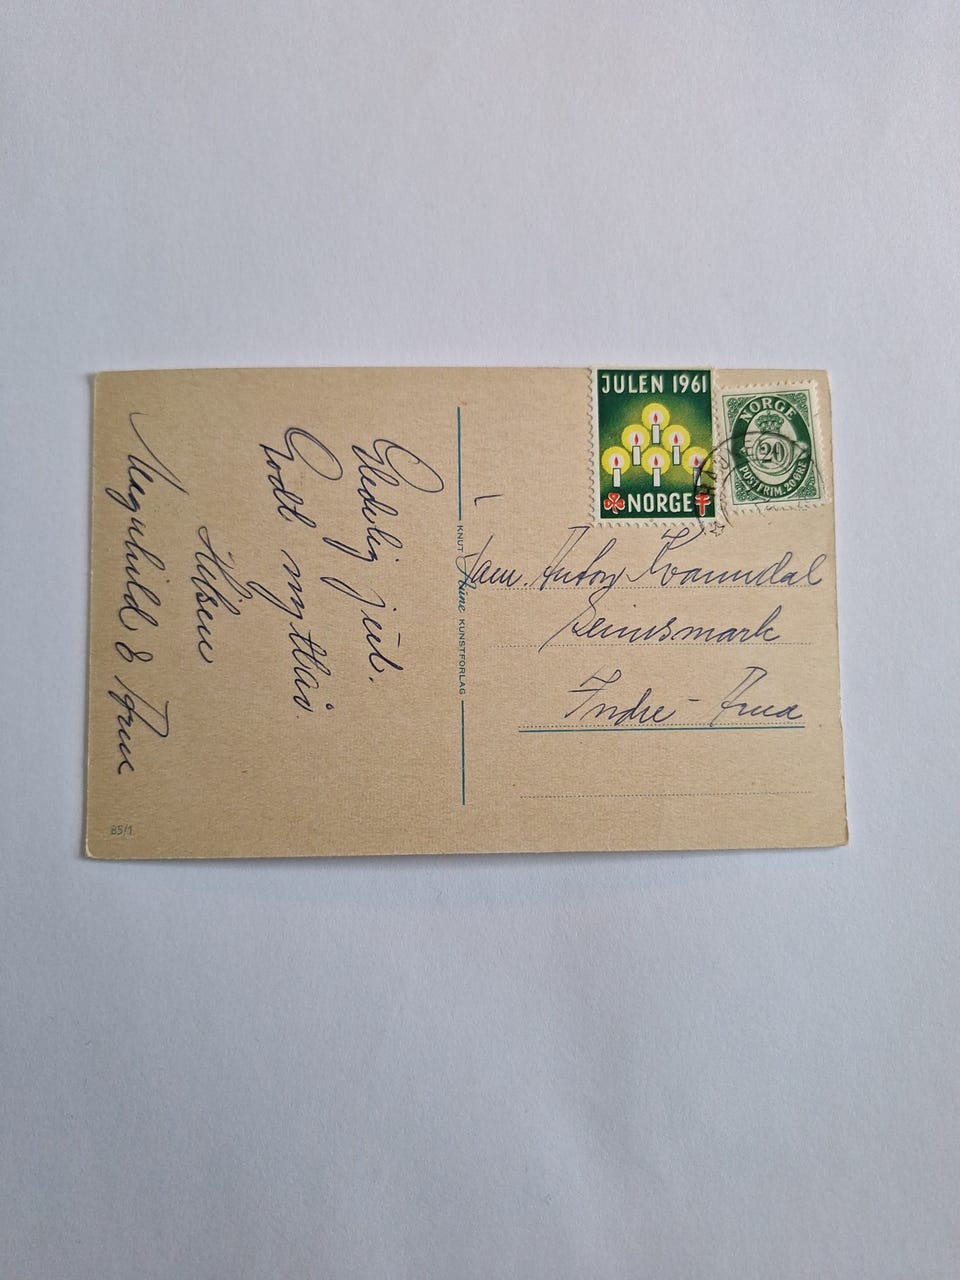 JULEN 1961
NORGE
NORGE
20
POSTFRIM. 20 ØRE
Gledelig jul.
Godt nyttår.
Hilsen
Magnhild & Arne
KNUT Aune KUNSTFORLAG
Fam. Anton Kvamsdal
Seimsmark
Indre-Arna
85/1